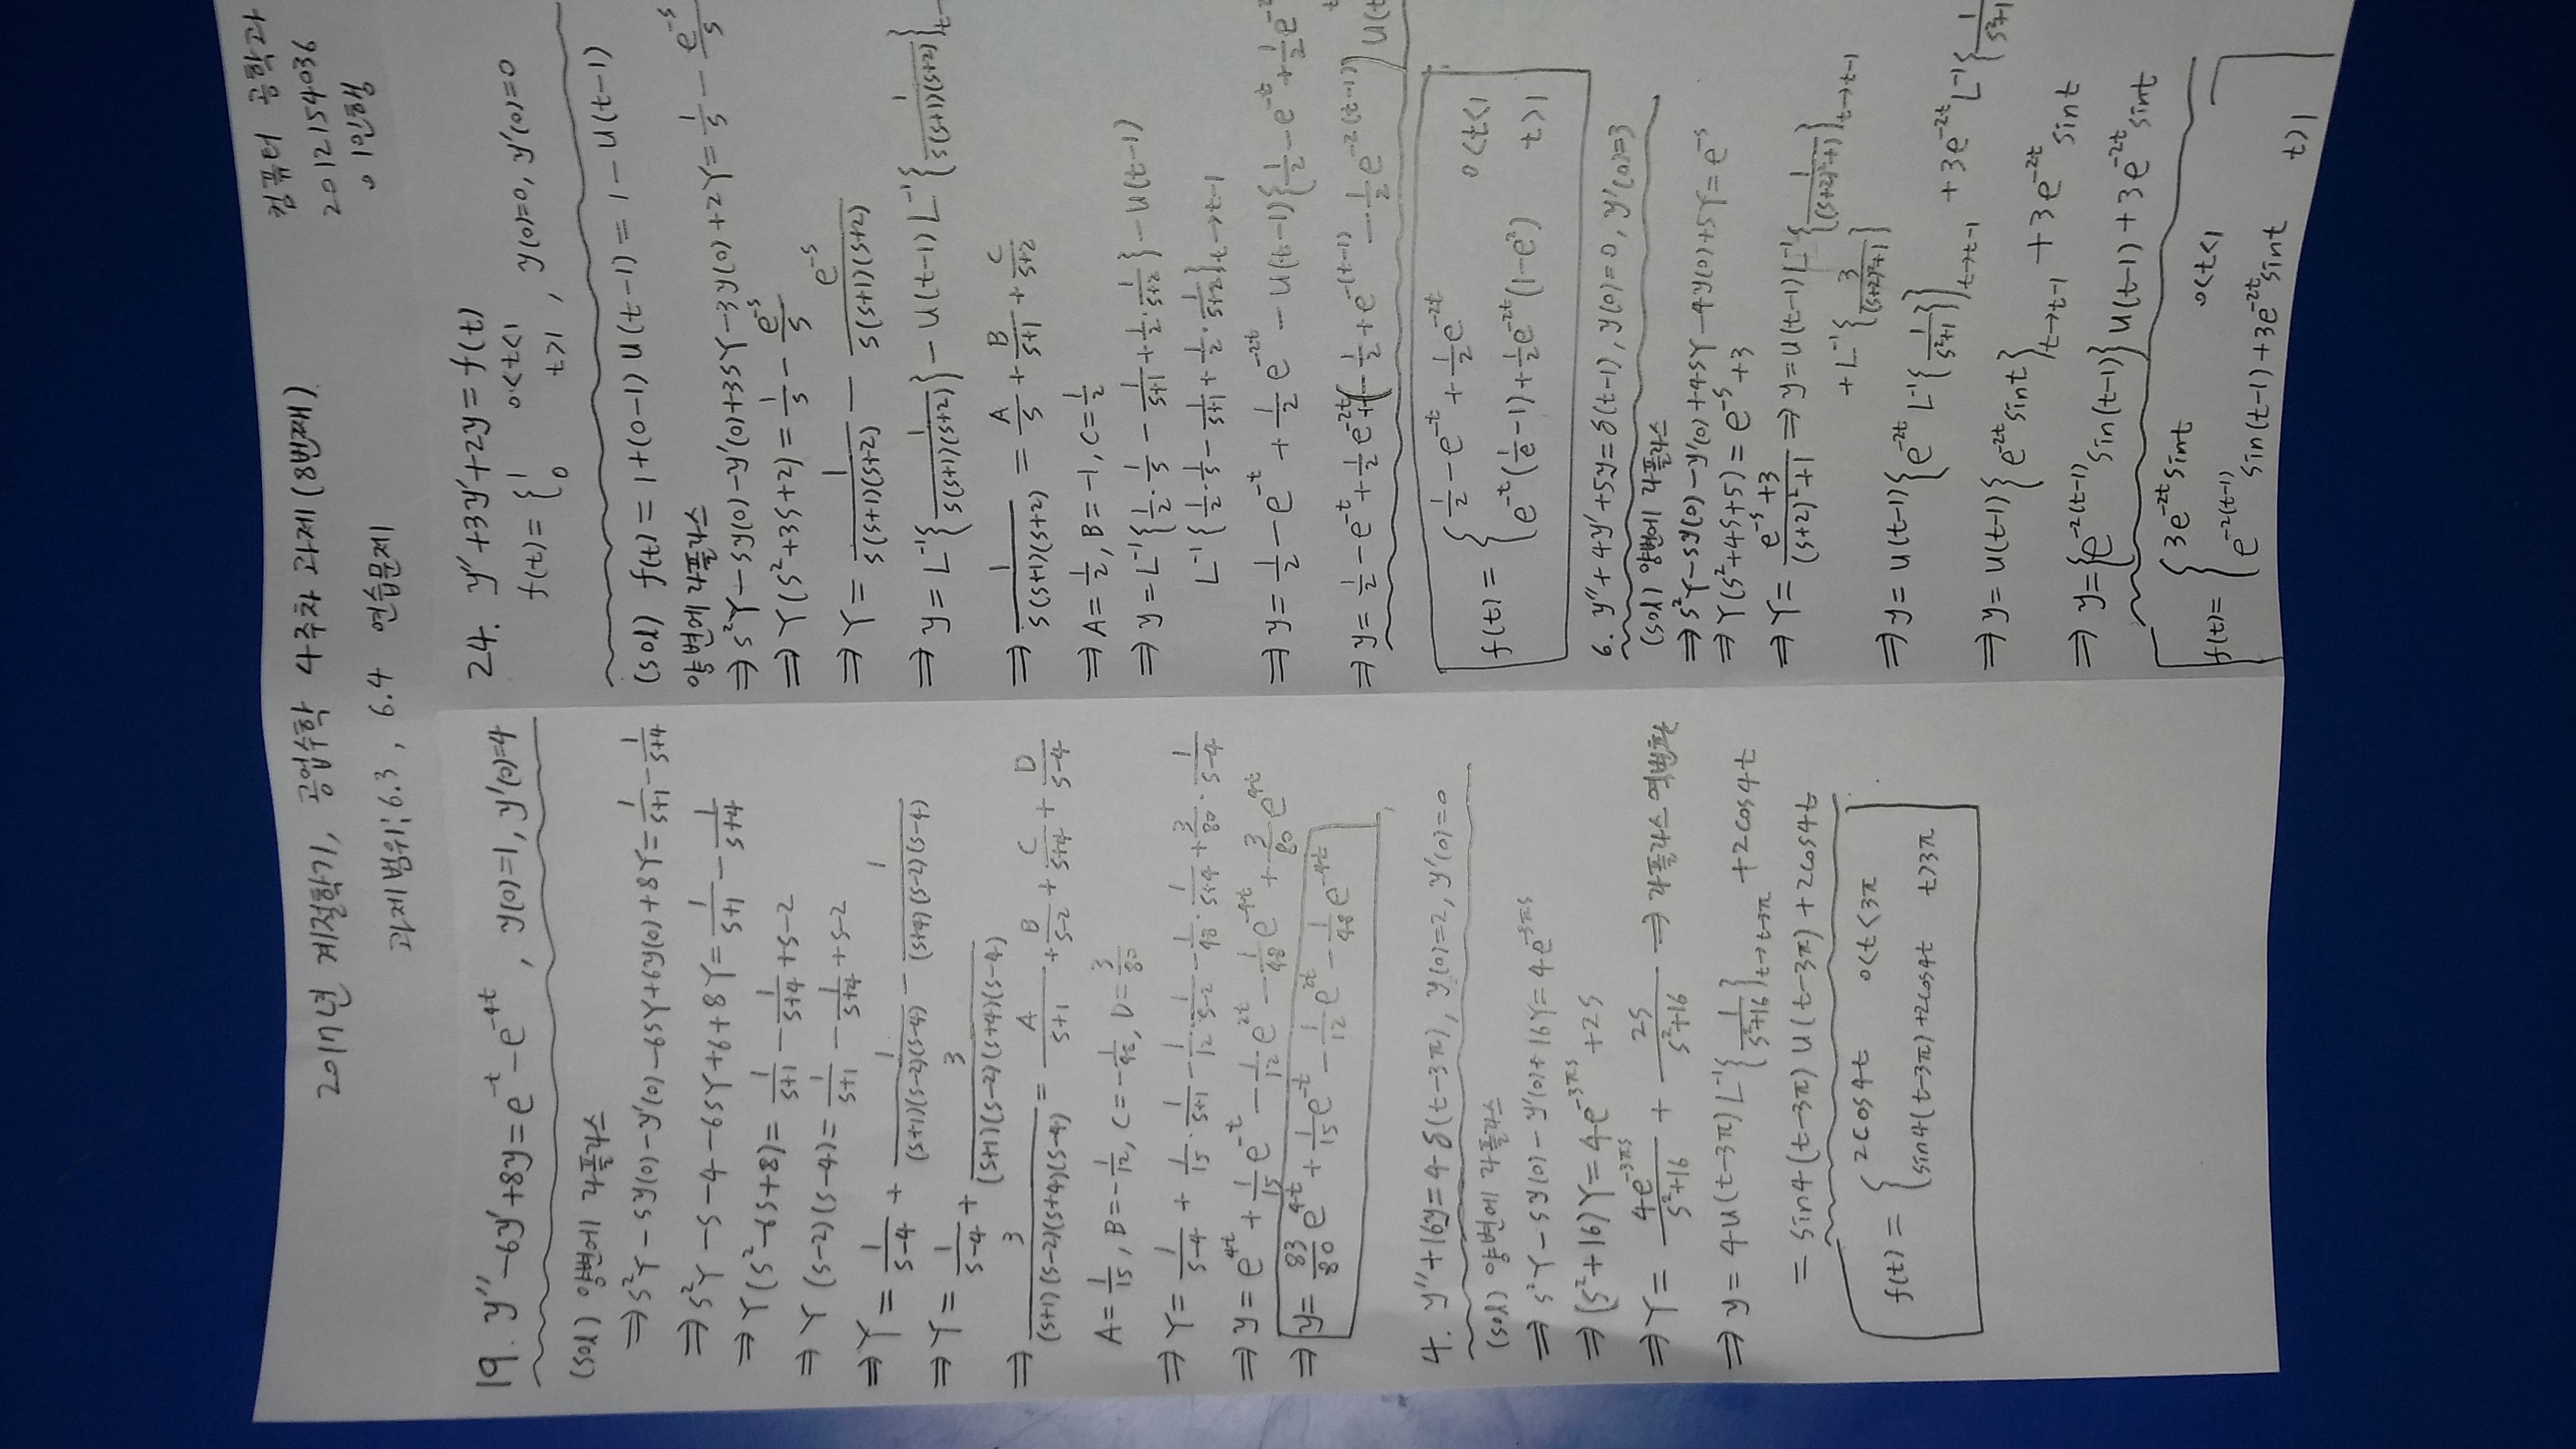 2017년 계절학기, 공업수학 4주차 과제(8번째)
과제범위: 6.3, 6.4 연습문제
컴퓨터 공학과
2012154036
이인행
19. y''-6y'+8y=e^{-t}-e^{-4t}, y(0)=1, y'(0)=4
(sol) 양변에 라플라스
⇒ s²Y-sy(0)-y'(0)-6sY+6y(0)+8Y=\frac{1}{s+1}-\frac{1}{s+4}
⇒ s²Y-s-4-6sY+6+8Y=\frac{1}{s+1}-\frac{1}{s+4}
⇒ Y(s²-6s+8)=\frac{1}{s+1}-\frac{1}{s+4}+s-2
⇒ Y(s-2)(s-4)=\frac{1}{s+1}-\frac{1}{s+4}+s-2
⇒ Y=\frac{1}{s-4}+\frac{1}{(s+1)(s-2)(s-4)}-\frac{1}{(s+4)(s-2)(s-4)}
⇒ Y=\frac{1}{s-4}+\frac{3}{(s+1)(s-2)(s+4)(s-4)}
⇒ \frac{3}{(s+1)(s-2)(s+4)(s-4)}=\frac{A}{s+1}+\frac{B}{s-2}+\frac{C}{s+4}+\frac{D}{s-4}
A=\frac{1}{15}, B=-\frac{1}{12}, C=-\frac{1}{48}, D=\frac{3}{80}
⇒ Y=\frac{1}{s-4}+\frac{1}{15}·\frac{1}{s+1}-\frac{1}{12}·\frac{1}{s-2}-\frac{1}{48}·\frac{1}{s+4}+\frac{3}{80}·\frac{1}{s-4}
⇒ y=e^{4t}+\frac{1}{15}e^{-t}-\frac{1}{12}e^{2t}-\frac{1}{48}e^{-4t}+\frac{3}{80}e^{4t}
⇒ y=\frac{83}{80}e^{4t}+\frac{1}{15}e^{-t}-\frac{1}{12}e^{2t}-\frac{1}{48}e^{-4t}
4. y''+16y=4δ(t-3π), y(0)=2, y'(0)=0
(sol) 양변에 라플라스
⇒ s²Y-sy(0)-y'(0)+16Y=4e^{-3πs}
⇒ (s²+16)Y=4e^{-3πs}+2s
⇒ Y=\frac{4e^{-3πs}}{s²+16}+\frac{2s}{s²+16} ⇒ 라플라스 역변환
⇒ y=4U(t-3π)L^{-1}{\frac{1}{s²+16}}_{t→t-3π}+2cos4t
=sin4(t-3π)U(t-3π)+2cos4t
f(t)={2cos4t 0<t<3π
sin4(t-3π)+2cos4t t>3π
24. y''+3y'+2y=f(t)
f(t)={1 0<t<1
0 t>1, y(0)=0, y'(0)=0
(sol) f(t)=1+(0-1)U(t-1)=1-U(t-1)
양변에 라플라스
⇒ s²Y-sy(0)-y'(0)+3sY-3y(0)+2Y=\frac{1}{s}-\frac{e^{-s}}{s}
⇒ Y(s²+3s+2)=\frac{1}{s}-\frac{e^{-s}}{s}
⇒ Y=\frac{1}{s(s+1)(s+2)}-\frac{e^{-s}}{s(s+1)(s+2)}
⇒ y=L^{-1}{\frac{1}{s(s+1)(s+2)}}-U(t-1)L^{-1}{\frac{1}{s(s+1)(s+2)}}_{t-
⇒ \frac{1}{s(s+1)(s+2)}=\frac{A}{s}+\frac{B}{s+1}+\frac{C}{s+2}
⇒ A=\frac{1}{2}, B=-1, C=\frac{1}{2}
⇒ y=L^{-1}{\frac{1}{2}·\frac{1}{s}-\frac{1}{s+1}+\frac{1}{2}·\frac{1}{s+2}}-U(t-1)
L^{-1}{\frac{1}{2}·\frac{1}{s}-\frac{1}{s+1}+\frac{1}{2}·\frac{1}{s+2}}_{t→t-1}
⇒ y=\frac{1}{2}-e^{-t}+\frac{1}{2}e^{-2t}-U(t-1){\frac{1}{2}-e^{-t}+\frac{1}{2}e^{-2
⇒ y=\frac{1}{2}-e^{-t}+\frac{1}{2}e^{-2t}+(-\frac{1}{2}+e^{-(t-1)}-\frac{1}{2}e^{-2(t-1)})U(t
f(t)={\frac{1}{2}-e^{-t}+\frac{1}{2}e^{-2t} 0<t<1
e^{-t}(\frac{1}{e}-1)+\frac{1}{2}e^{-2t}(1-e²) t>1
6. y''+4y'+5y=δ(t-1), y(0)=0, y'(0)=3
(sol) 양변에 라플라스
⇒ s²Y-sy(0)-y'(0)+4sY-4y(0)+5Y=e^{-s}
⇒ Y(s²+4s+5)=e^{-s}+3
⇒ Y=\frac{e^{-s}+3}{(s+2)²+1} ⇒ y=U(t-1)L^{-1}{\frac{1}{(s+2)²+1}}_{t→t-1}
+L^{-1}{\frac{3}{(s+2)²+1}}
⇒ y=U(t-1){e^{-2t}L^{-1}{\frac{1}{s²+1}}}_{t→t-1}+3e^{-2t}L^{-1}{\frac{1}{s²+1
⇒ y=U(t-1){e^{-2t}sint}_{t→t-1}+3e^{-2t}sint
⇒ y={e^{-2(t-1)}sin(t-1)}U(t-1)+3e^{-2t}sint
f(t)={3e^{-2t}sint 0<t<1
e^{-2(t-1)}sin(t-1)+3e^{-2t}sint t>1